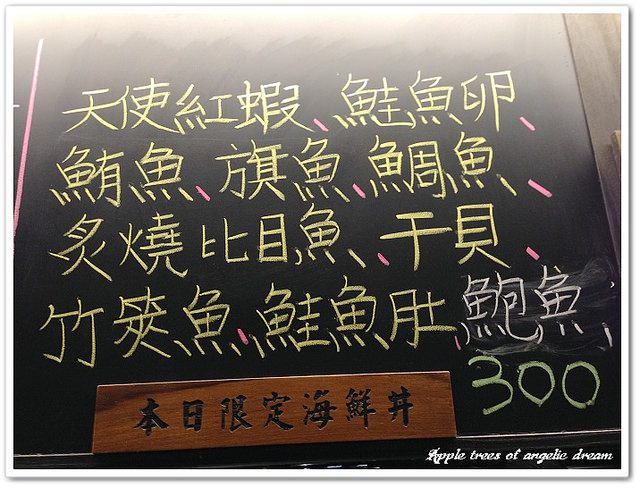 天使紅蝦、鮭魚卵、
鮪魚、旗魚、鯛魚、
炙燒比目魚、干貝、
竹筴魚、鮭魚肚、鮑魚
300
本日限定海鮮丼
Apple trees of angelic dream